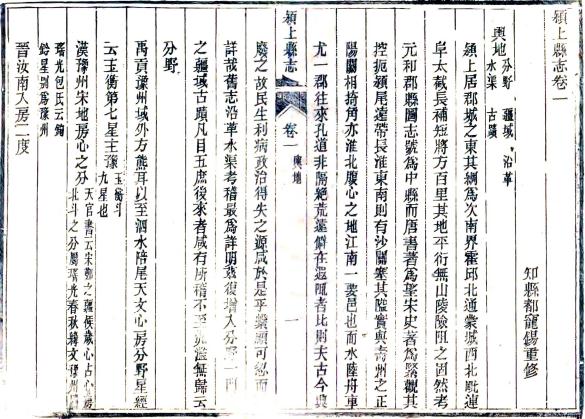 潁上縣志卷一
知縣都寵錫重修
輿地 分野 疆域 沿革
水渠 古蹟
潁上居郡城之東其綢爲次南界霍邱北通蒙城西北毗連
阜太截長補短將方百里其地平衍無山陵險阻之固然考
元和郡縣圖志號爲中縣而唐書著爲望宋史著爲緊觀其
控扼潁尾遠帶長淮東南則有沙關塞其隘實與壽州之正
陽關相掎角亦淮北腹心之地江南一要邑也而水陸舟車
尤一郡往來孔道非隔絶荒遠僻在遐陬者比則夫古今興
潁上縣志 卷一 輿地 一
廢之故民生利病政治得失之源咸於是乎繫顧可忽而
詳哉舊志沿革水渠考稽最爲詳明茲復增入分野一門
之疆域古蹟凡目五庶後來者咸有所稽不至汎濫無歸云
分野
禹貢豫州域外方熊耳以至泗水陪尾天文心房分野星經
云玉衡第七星主豫 玉衡斗
九星也
漢豫州宋地房心之分 天官書云宋鄭之疆候歲心占心房
北斗之分屬瑤光春秋緯文豫州屬
瑤光包氏云鉤
鈐星別爲豫州
晉汝南入房二度